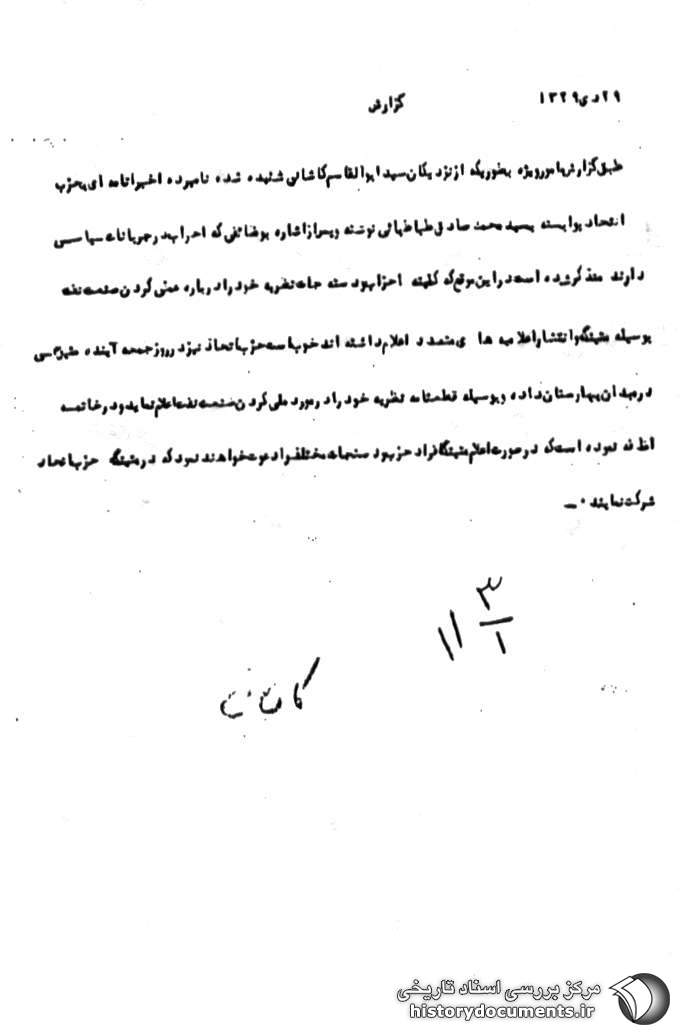 ۲۹ دی ۱۳۲۹
گزارش
طبق گزارش مامور ویژه بطوریکه از نزدیکان سید ابوالقاسم کاشانی شنیده شده نامبرده اخیرا نامه ای بحزب
اتحاد یوابسته بسید محمد صادق طباطبائی نوشته و پس از اشاره بوضائفی که احزاب در جریانات سیاسی
دارند متذکر شده است در این موقع که کلیه احزاب و دسته جات نظریه خود را درباره ملی کردن صنعت نفت
بوسیله متینگ و انتشار اعلامیه های متعدد اعلام داشته اند خوب است حزب اتحاد نیز در روز جمعه آینده متینگی
در میدان بهارستان داده و بوسیله قطعنامه نظریه خود را در مورد ملی کردن صنعت نفت اعلام نماید و در خاتمه
اظافه نموده است که در صورت اعلام متینگ افراد حزب و دستجات مختلف را دعوت خواهند نمود که در متینگ حزب اتحاد
شرکت نمایند . ــ
۳
۱۱ ۱
مرکز بررسی اسناد تاریخی
historydocuments.ir